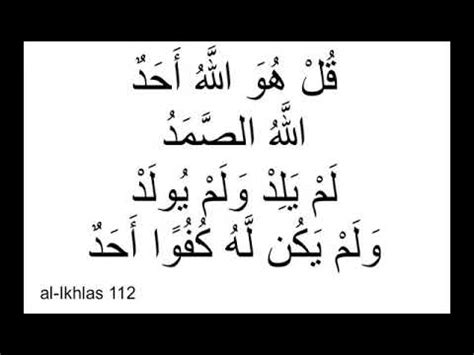 قُلْ هُوَ اللَّهُ أَحَدٌ
اللَّهُ الصَّمَدُ
لَمْ يَلِدْ وَلَمْ يُولَدْ
وَلَمْ يَكُن لَّهُ كُفُوًا أَحَدٌ
al-Ikhlas 112